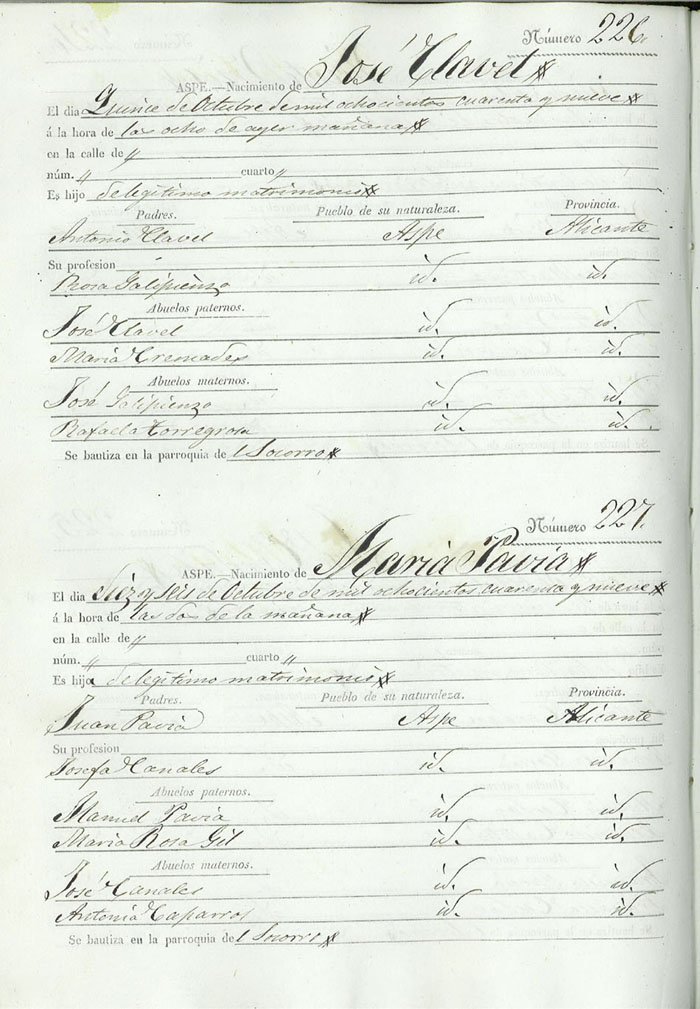 Número 226.
ASPE.—Nacimiento de José Clavel
El dia Quince de Octubre de mil ochocientos cuarenta y nueve
á la hora de las ocho de ayer mañana
en la calle de "
núm. " cuarto "
Es hijo de legitimo matrimonio
Padres. Pueblo de su naturaleza. Provincia.
Antonio Clavel Aspe Alicante
Su profesion
Rosa Galipienzo id. id.
Abuelos paternos.
José Clavel id. id.
Maria Cremades id. id.
Abuelos maternos.
José Galipienzo id. id.
Rafaela Torregrosa id. id.
Se bautiza en la parroquia del Socorro
Número 227.
ASPE.—Nacimiento de Maria Pavia
El dia diez y seis de Octubre de mil ochocientos cuarenta y nueve
á la hora de las dos de la mañana
en la calle de "
núm. " cuarto "
Es hija de legitimo matrimonio
Padres. Pueblo de su naturaleza. Provincia.
Juan Pavia Aspe Alicante
Su profesion
Josefa Canales id. id.
Abuelos paternos.
Manuel Pavia id. id.
Maria Rosa Gil id. id.
Abuelos maternos.
José Canales id. id.
Antonia Caparros id. id.
Se bautiza en la parroquia del Socorro